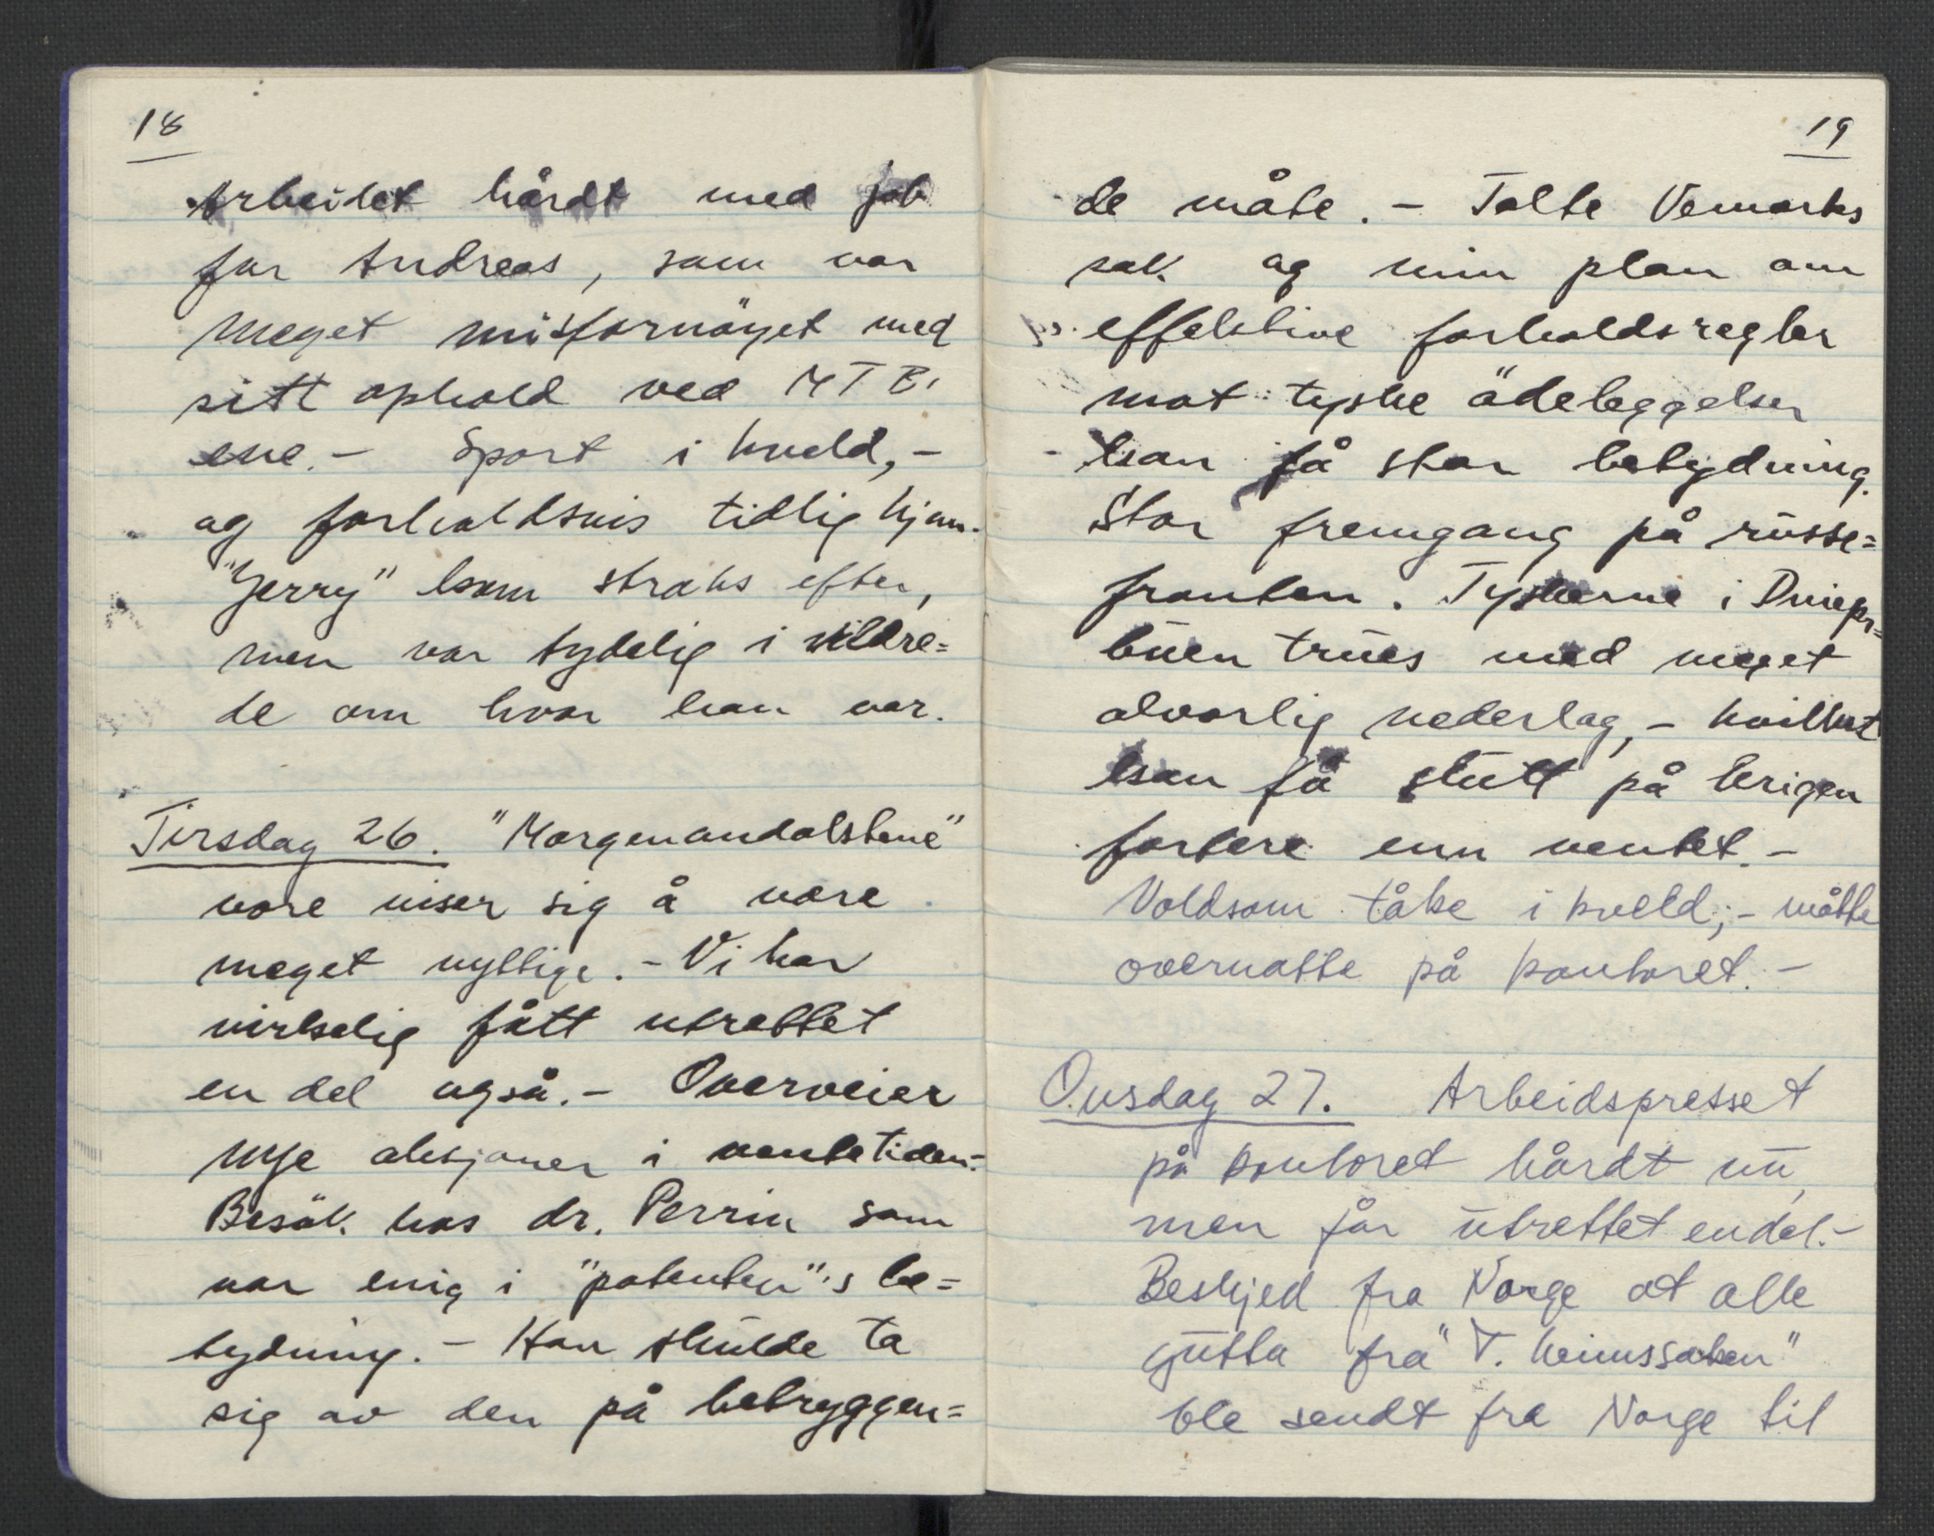 18
Arbeidet hårdt med job
for Andreas, som var
meget misfornöyet med
sitt ophold ved MTB.
ene. - Sport i kveld, -
og forholdsvis tidlig hjem.
"Jerry" kom straks efter,
men var tydelig i villre=
de om hvor han var.
Tirsdag 26. "Morgenandaktene"
våre viser sig å være
meget nyttige. - Vi har
virkelig fått utrettet
en del også. - Overveier
nye aksjoner i ventetiden. -
Besök hos dr. Perrin som
var enig i "patenten"'s be=
tydning. - Han skulde ta
sig av den på betryggen=
19
de måte. - Talte Vemorks
sak og min plan om
effektive forholdsregler
mot tyske ödeleggelser
kan få stor betydning.
Stor fremgang på russe=
fronten. Tyskerne i Dniepr=
buen trues med meget
alvorlig nederlag, - hvilket
kan få slutt på krigen
fortere enn ventet. -
Voldsom tåke i kveld; - måtte
overnatte på kontoret. -
Onsdag 27. Arbeidspresset
på kontoret hårdt nu,
men får utrettet endel. -
Beskjed fra Norge at alle
gutta fra "T. heimssaken"
ble sendt fra Norge til